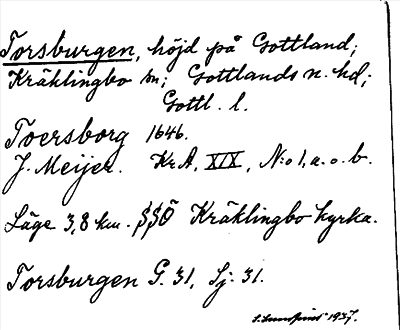 Torsburgen, höjd på Gottland;
Kräklingbo sn; Gottlands n. hd;
Gottl. l.
Toersborg 1646.
J. Meijer. Kr.A, XIX, N:o 1, a. o. b.
Läge 3,8 km. SSÖ Kräklingbo kyrka.
Torsburgen G. 31, Sj: 31.
1937.